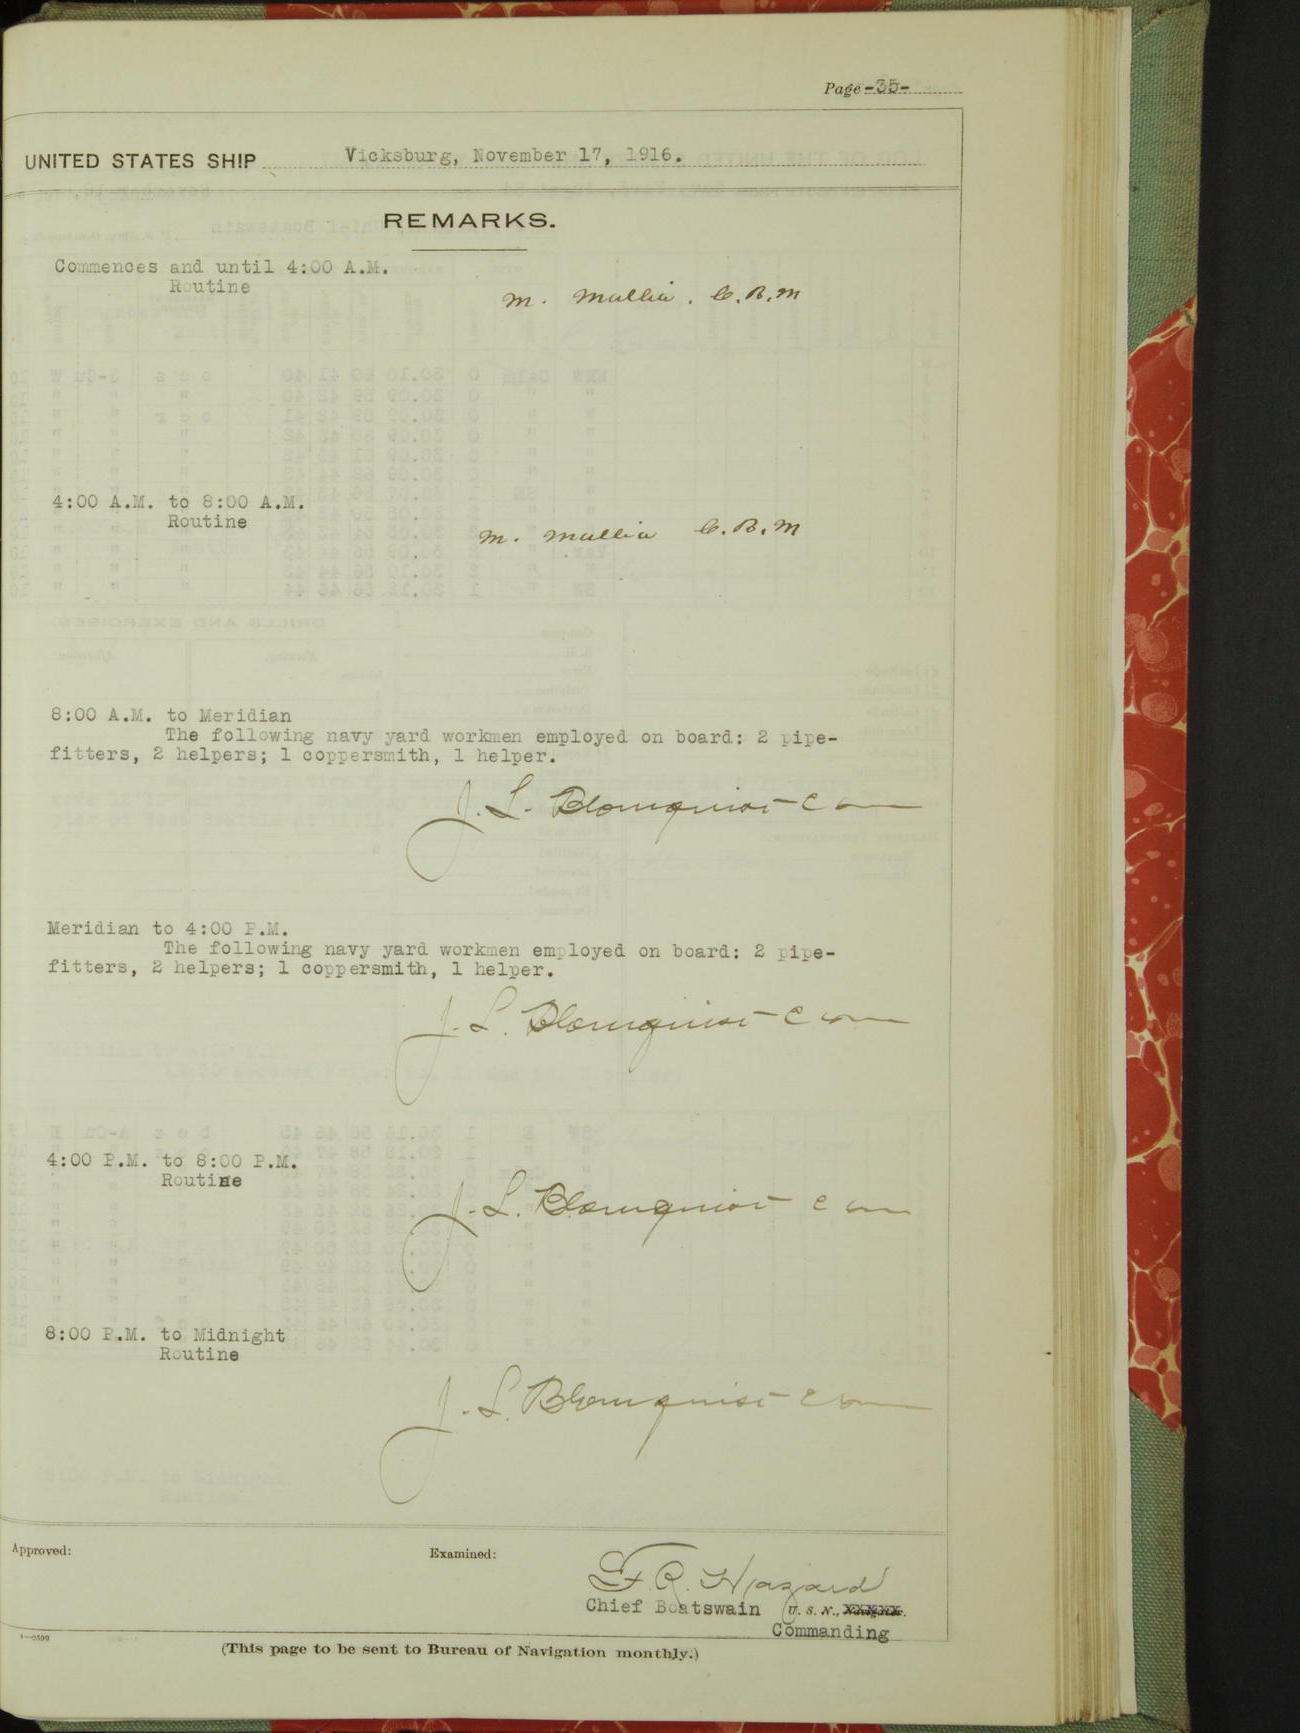 Page -35-
UNITED STATES SHIP Vicksburg, November 17, 1916.
REMARKS.
Commences and until 4:00 A.M.
Routine
M. Mallia. C.B.M
4:00 A.M. to 8:00 A.M.
Routine
M. Mallia C.B.M
8:00 A.M. to Meridian
The following navy yard workmen employed on board: 2 pipe-
fitters, 2 helpers; 1 coppersmith, 1 helper.
J. L. Blomquist
Meridian to 4:00 P.M.
The following navy yard workmen employed on board: 2 pipe-
fitters, 2 helpers; 1 coppersmith, 1 helper.
J. L. Blomquist
4:00 P.M. to 8:00 P.M.
Routine
J. L. Blomquist
8:00 P.M. to Midnight
Routine
J. L. Blomquist
Approved:
Examined:
R. Hazard
Chief Boatswain U. S. N.,
Commanding
(This page to be sent to Bureau of Navigation monthly.)